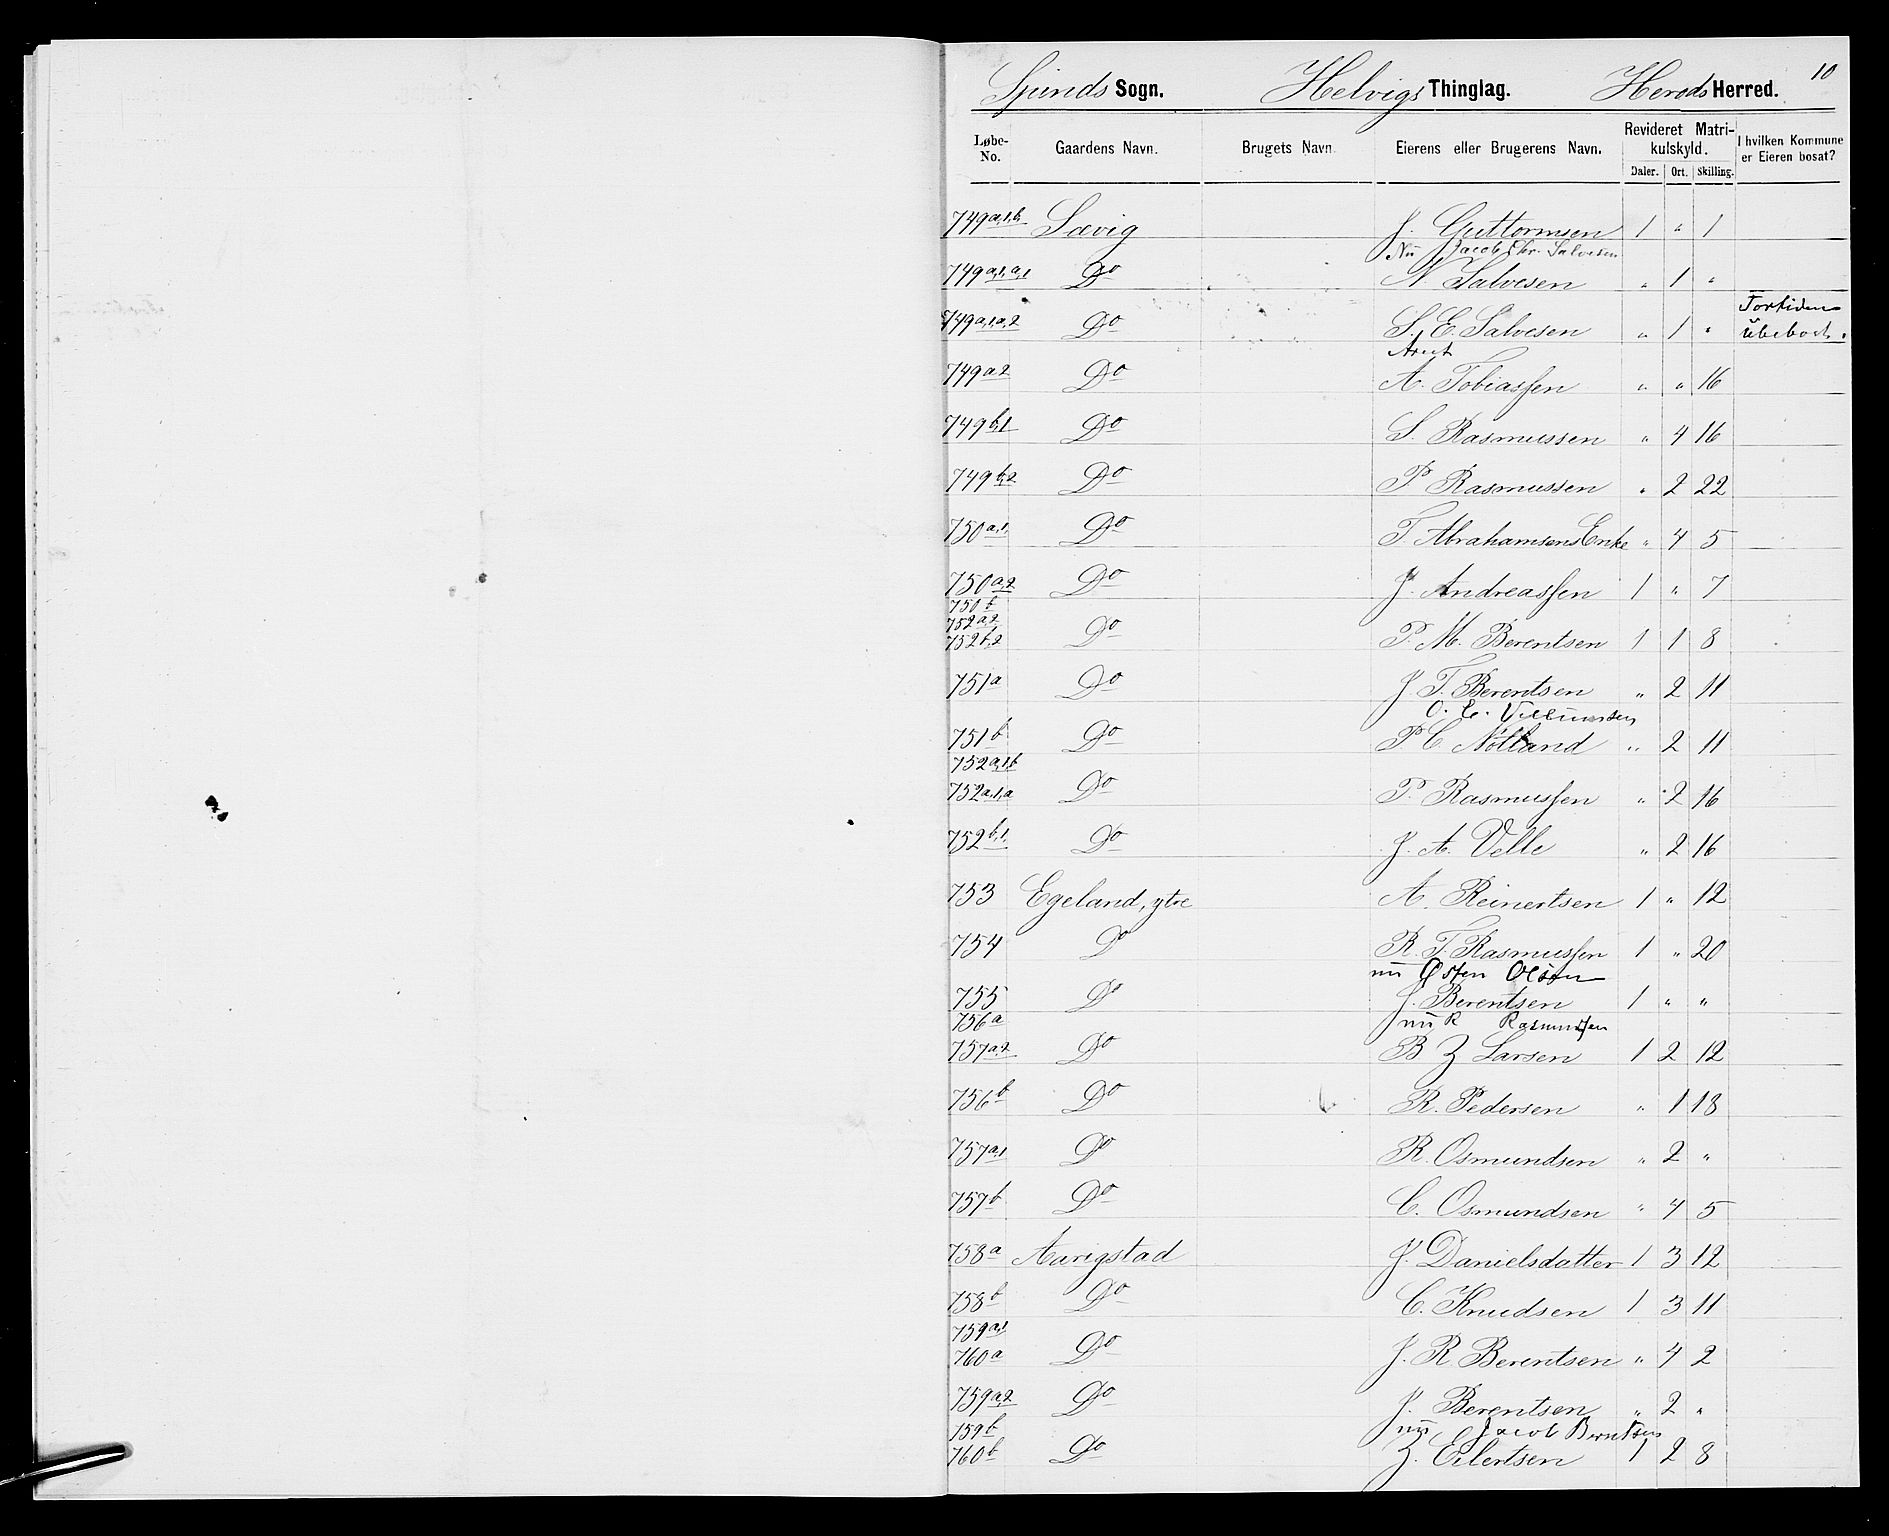 10
Spinds Sogn. Helvigs Thinglag. Herods Herred.
Løbe-No. Gaardens Navn. Brugets Navn. Eierens eller Brugerens Navn. Revideret Matrikulskyld. Daler. Ort. Skilling. I hvilken Kommune er Eieren bosat?
749 a,1,b Sævig J. Guttormsen 1 " 1
Nu Jacob Chr. Salvesen
749 a,1,a,1 Do N. Salvesen " 1 "
749 a,1,a,2 Do S. E. Salvesen " 1 " Fortiden ubeboet.
749 a2 Do A. Tobiassen " " 16
749 b,1 Do S. Rasmussen " 4 16
749 b,2 Do P. Rasmussen " 2 22
750 a,1, Do T. Abrahamsens Enke " 4 5
750 a,2 Do J. Andreassen 1 " 7
750 b
752 a,2
752 b,2 Do P. M. Berentsen 1 1 8
751 a Do J. T. Berentsen " 2 11
751 b Do P C Nøtland " 2 11
752 a,1,b
752 a,1,a Do P. Rasmussen " 2 16
752 b,1, Do J. A. Velle " 2 16
753 Egeland, ytre A. Reinertsen 1 " 12
754 Do R. T. Rasmussen 1 " 20
nu Østen Olsen
755 Do J. Berentsen 1 " "
756 a nu R Rasmussen
757 a,2 Do B Z Larsen 1 2 12
756 b Do R. Pedersen " 1 18
757 a,1 Do R. Osmundsen " 2 "
757 b Do C. Osmundsen " 4 5
758 a Aarigstad J. Danielsdatter 1 3 12
758 b Do C. Knudsen 1 3 11
759 a,1
760 a Do J. R Berentsen " 4 2
759 a,2 Do J. Berentsen " 2 "
759 b nu Jacob Berntsen
760 b Do Z. Eilertsen 1 2 8